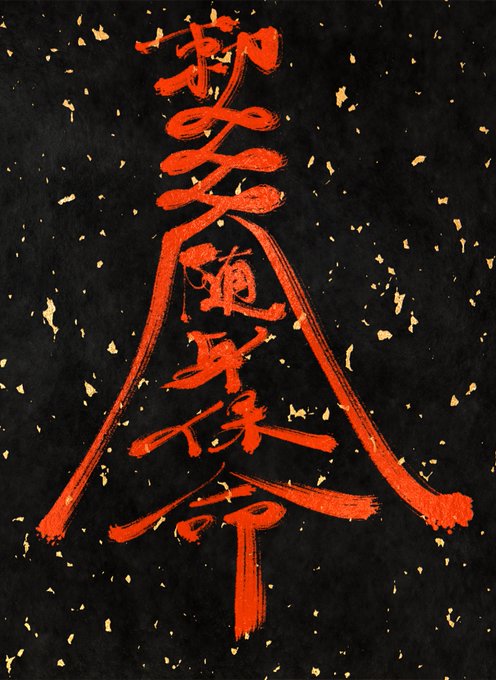 勅随身保命